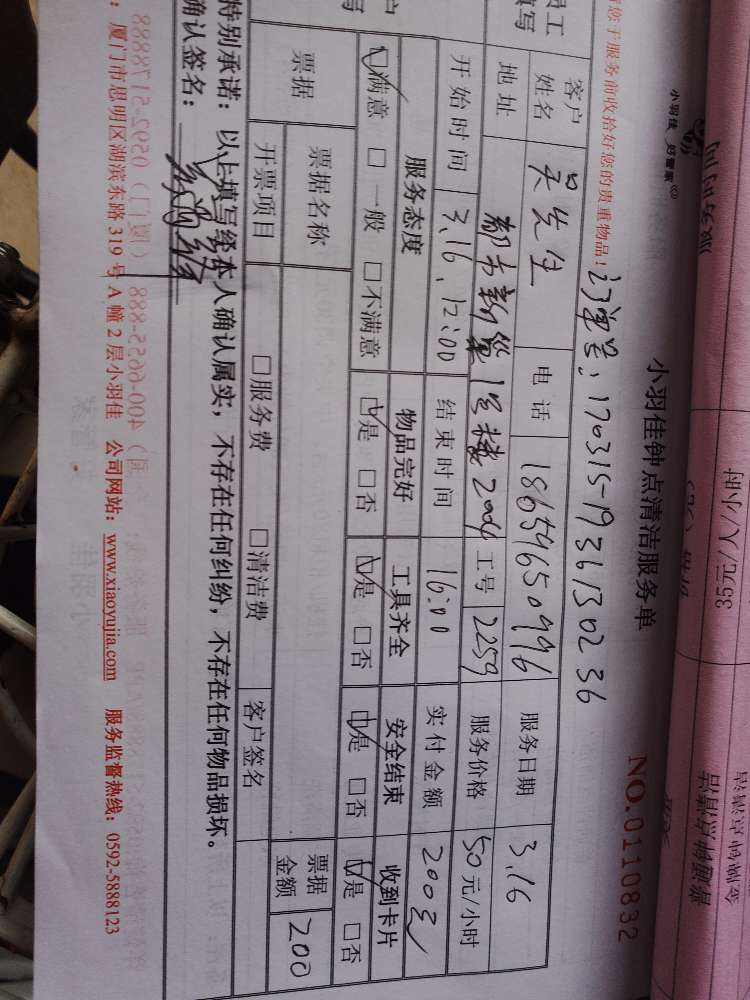 小羽佳 好管家
小羽佳钟点清洁服务单
NO.0110832
订单号：170315-19361302 36
您于服务前收拾好您的贵重物品！
员工
填写
客户
姓名
吴先生
电话
18659650996
服务日期
3.16
地址
都市新巢1号楼2004
工号
2259
服务价格
50元/小时
开始时间
3.16、12:00
结束时间
16:00
实付金额
200元
服务态度
物品完好
工具齐全
安全结束
收到卡片
☑满意 □一般 □不满意
☑是 □否
☑是 □否
☑是 □否
☑是 □否
票据
票据名称
票据金额
200
开票项目
□服务费 □清洁费
客户签名
特别承诺：以上填写经本人确认属实，不存在任何纠纷，不存在任何物品损坏。
确认签名：
：厦门市思明区湖滨东路 319 号 A 幢 2 层小羽佳 公司网站：www.xiaoyujia.com 服务监督热线：0592-5888123
35元/人/小时